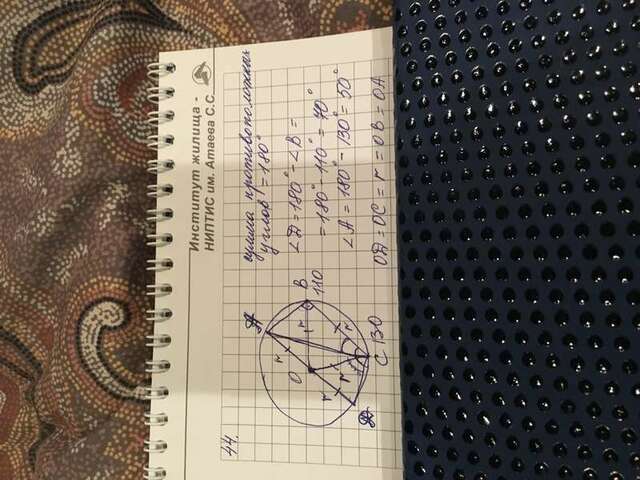 Институт жилища -
НИПТИС им. Атаева С.С.
44.
сумма противоположных
углов = 180°
∠D = 180° - ∠B =
= 180° - 110° = 70°
∠A = 180° - 130° = 50°
OD = OC = r = OB = OA
A
O
r
r
B
110
r
r
r
D
C 130